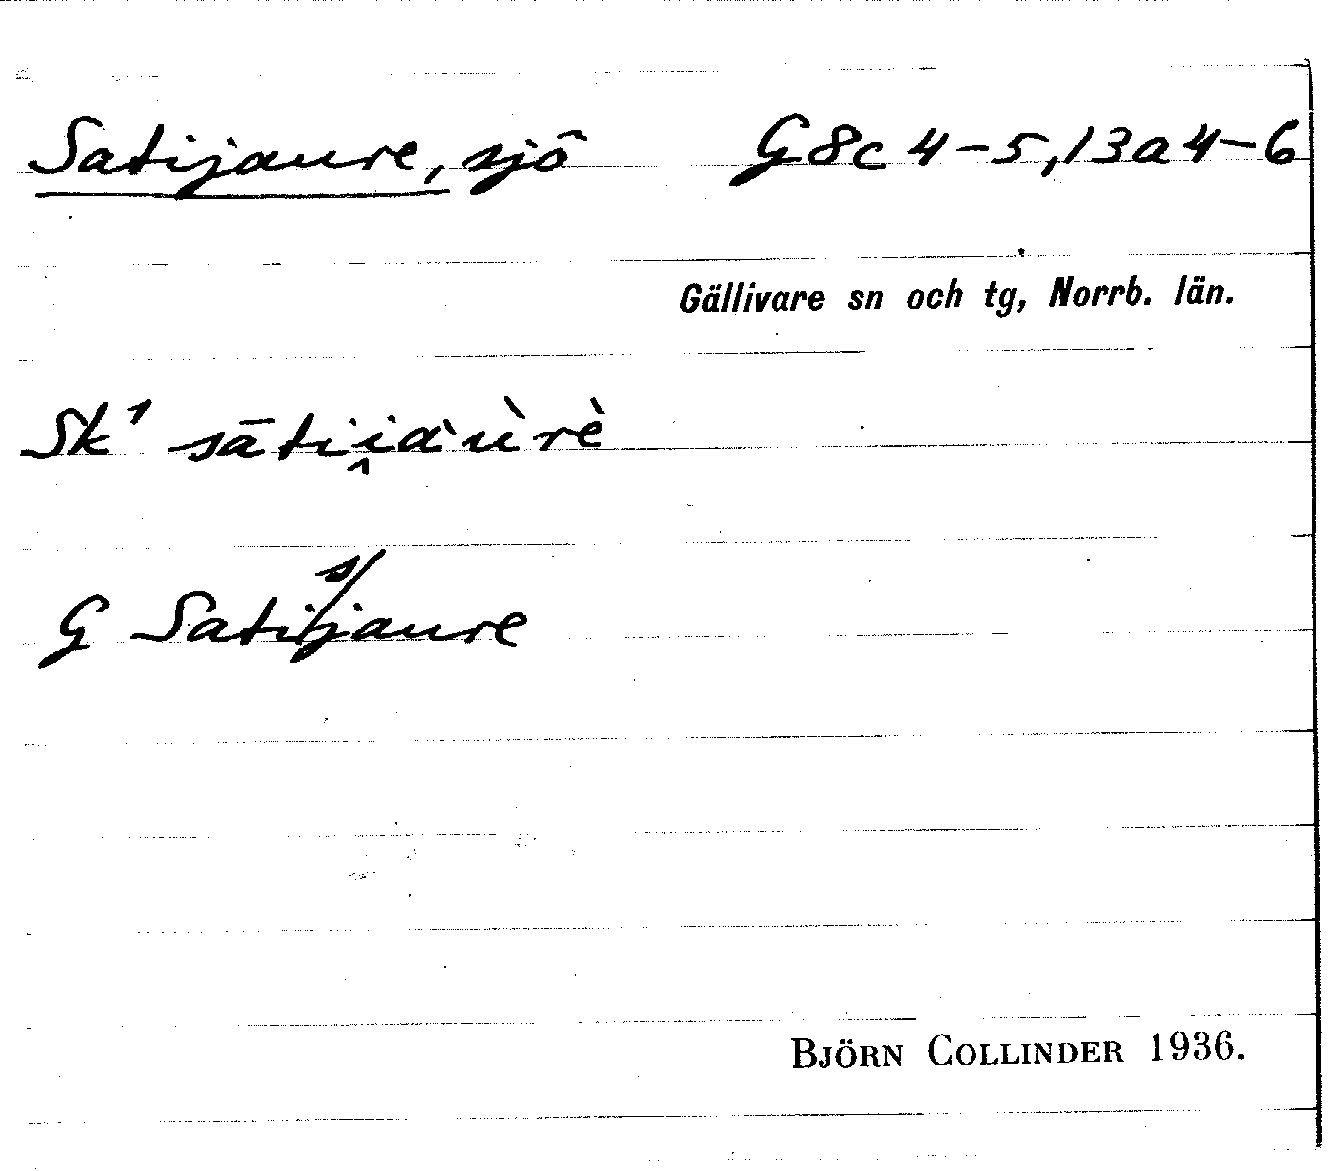 Satijaure, sjö G 8c 4-5, 13a 4-6
Gällivare sn och tg, Norrb. län.
Sk¹ sātii̯ȧ̀ùrè
G Satisjaure
BJÖRN COLLINDER 1936.